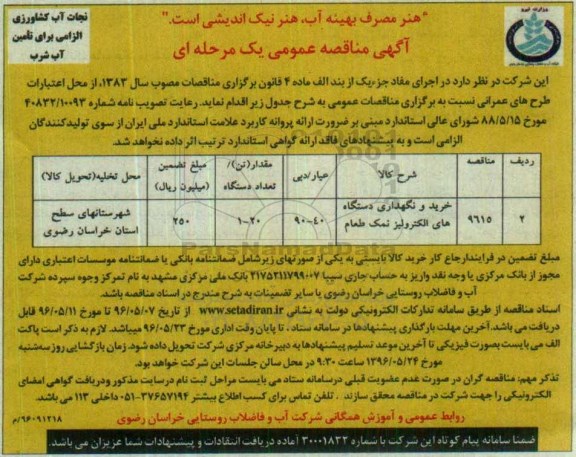 "هنر مصرف بهینه آب، هنر نیک اندیشی است."
نجات آب کشاورزی
الزامی برای تأمین
آب شرب
آگهی مناقصه عمومی یک مرحله ای
این شرکت در نظر دارد در اجرای مفاد جزءیک از بند الف ماده ۴ قانون برگزاری مناقصات مصوب سال ۱۳۸۳، از محل اعتبارات
طرح های عمرانی نسبت به برگزاری مناقصات عمومی به شرح جدول زیر اقدام نماید. رعایت تصویب نامه شماره ۴۰۸۳۲/۱۰۰۹۳
مورخ ۸۸/۵/۱۵ شورای عالی استاندارد مبنی بر ضرورت ارائه پروانه کاربرد علامت استاندارد ملی ایران از سوی تولیدکنندگان
الزامی است و به پیشنهادهای فاقد ارائه گواهی استاندارد ترتیب اثر داده نخواهد شد.
ردیف مناقصه شرح کالا عیار/دبی مقدار(تن)/تعداد دستگاه مبلغ تضمین (میلیون ریال) محل تخلیه(تحویل کالا)
۲ ۹۶۱۵ خرید و نگهداری دستگاه های الکترولیز نمک طعام ۹۰-۴۰ ۱-۲۰ ۲۵۰ شهرستانهای سطح استان خراسان رضوی
ParsNamadData
مبلغ تضمین در فرایندارجاع کار خرید کالا بایستی به یکی از صورتهای زیرشامل ضمانتنامه بانکی یا ضمانتنامه موسسات اعتباری دارای
مجوز از بانک مرکزی یا وجه نقد واریز به حساب جاری سیبا ۲۱۷۵۳۱۱۷۹۹۰۰۷ بانک ملی مرکزی مشهد به نام تمرکز وجوه سپرده شرکت
آب و فاضلاب روستایی خراسان رضوی یا سایر تضمینات به شرح مندرج در اسناد مناقصه باشد.
اسناد مناقصه از طریق سامانه تدارکات الکترونیکی دولت به نشانی www.setadiran.ir از تاریخ ۹۶/۰۵/۰۷ تا مورخ ۹۶/۰۵/۱۱ قابل
دریافت می باشد. آخرین مهلت بارگذاری پیشنهادها در سامانه ستاد ، تا پایان وقت اداری مورخ ۹۶/۰۵/۲۳ میباشد. لازم به ذکر است پاکت
الف می بایست بصورت فیزیکی تا آخرین موعد تسلیم پیشنهادها به دبیرخانه مرکزی شرکت تحویل داده شود. زمان بازگشایی روز سه شنبه
مورخ ۱۳۹۶/۰۵/۲۴ ساعت ۹:۳۰ در محل سالن جلسات این شرکت خواهد بود.
تذکر مهم: مناقصه گران در صورت عدم عضویت قبلی درسامانه ستاد می بایست مراحل ثبت نام درسایت مذکور ودریافت گواهی امضای
الکترونیکی را جهت شرکت در مناقصه محقق سازند . تلفن تماس برای کسب اطلاع بیشتر ۳۷۶۵۷۱۹۴-۰۵۱ داخلی ۱۱۳ می باشد.
روابط عمومی و آموزش همگانی شرکت آب و فاضلاب روستایی خراسان رضوی
۹۶۰۹۱۲۱۸/م
ضمنا سامانه پیام کوتاه این شرکت با شماره ۳۰۰۰۱۸۳۲ آماده دریافت انتقادات و پیشنهادات شما عزیزان می باشد.